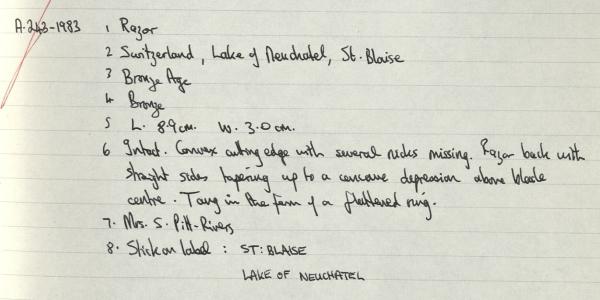 A.243-1983 1 Razor
2 Switzerland, Lake of Neuchatel, St. Blaise
3 Bronze Age
4 Bronze
5 L. 8.9cm. W. 3.0cm.
6 Intact. Convex cutting edge with several nicks missing. Razor back with
straight sides tapering up to a concave depression above blade
centre. Tang in the form of a flattened ring.
7. Mrs. S. Pitt-Rivers
8. Stick on label : ST: BLAISE
LAKE OF NEUCHATEL